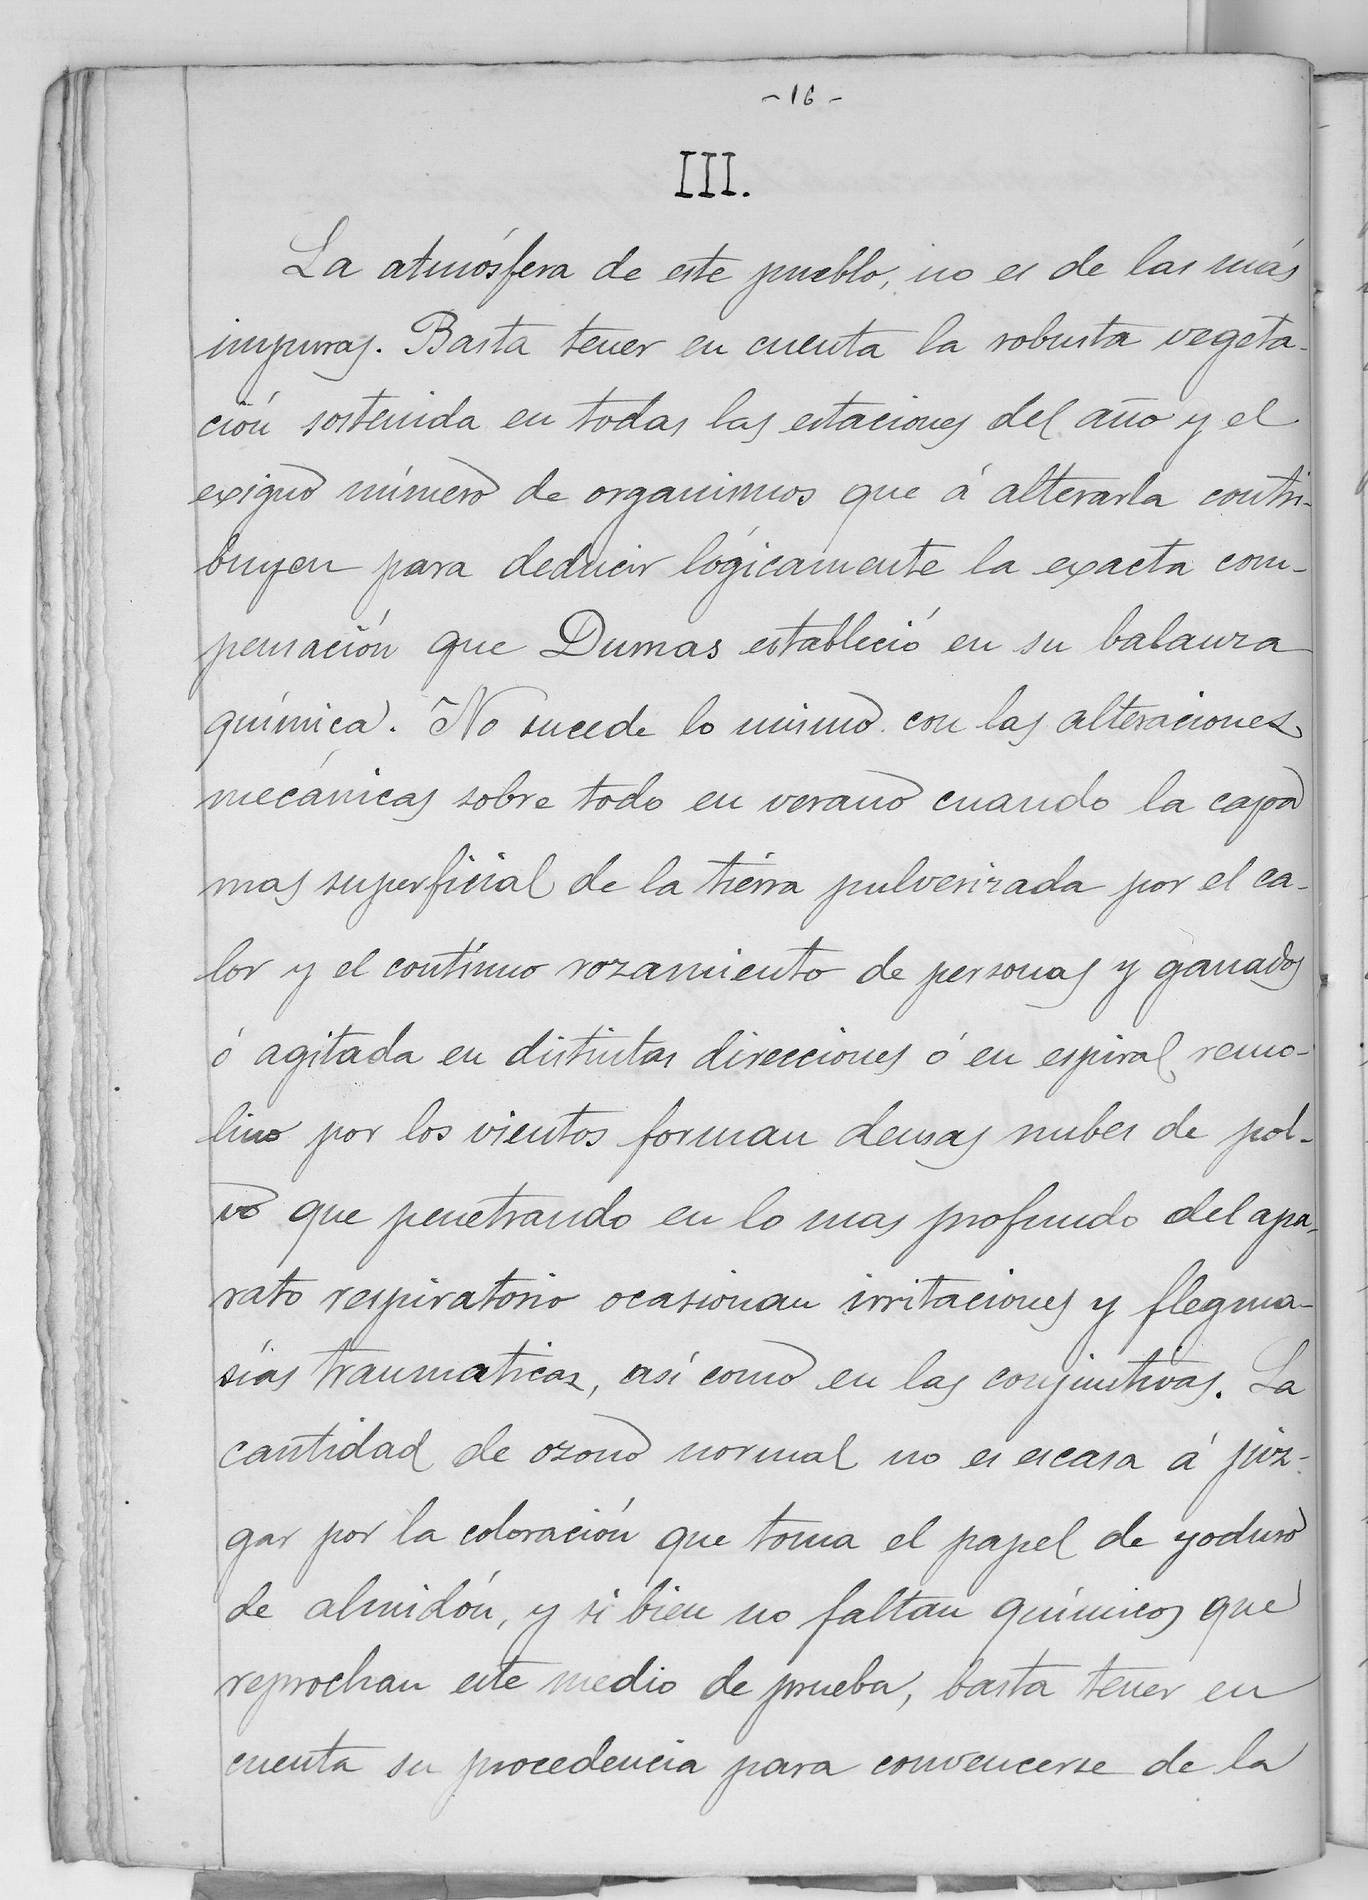 -16-
III.
La atmósfera de este pueblo, no es de las más
impuras. Basta tener en cuenta la robusta vegeta-
ción sostenida en todas las estaciones del año y el
exiguo número de organismos que á alterarla contri-
buyen para deducir lógicamente la exacta com-
pensación que Dumas estableció en su balanza
química. No sucede lo mismo con las alteraciones
mecánicas sobre todo en verano cuando la capa
mas superficial de la tierra pulverizada por el ca-
lor y el contínuo rozamiento de personas y ganados
ó agitada en distintas direcciones ó en espiral remo-
lino por los vientos forman densas nubes de pol-
vo que penetrando en lo mas profundo del apa-
rato respiratorio ocasionan irritaciones y flegma-
sías traumaticas, así como en las conjuntivas. La
cantidad de ozono normal no es escasa á juz-
gar por la coloración que toma el papel de yoduro
de almidón, y si bien no faltan químicos que
reprochan este medio de prueba, basta tener en
cuenta su procedencia para convencerse de la